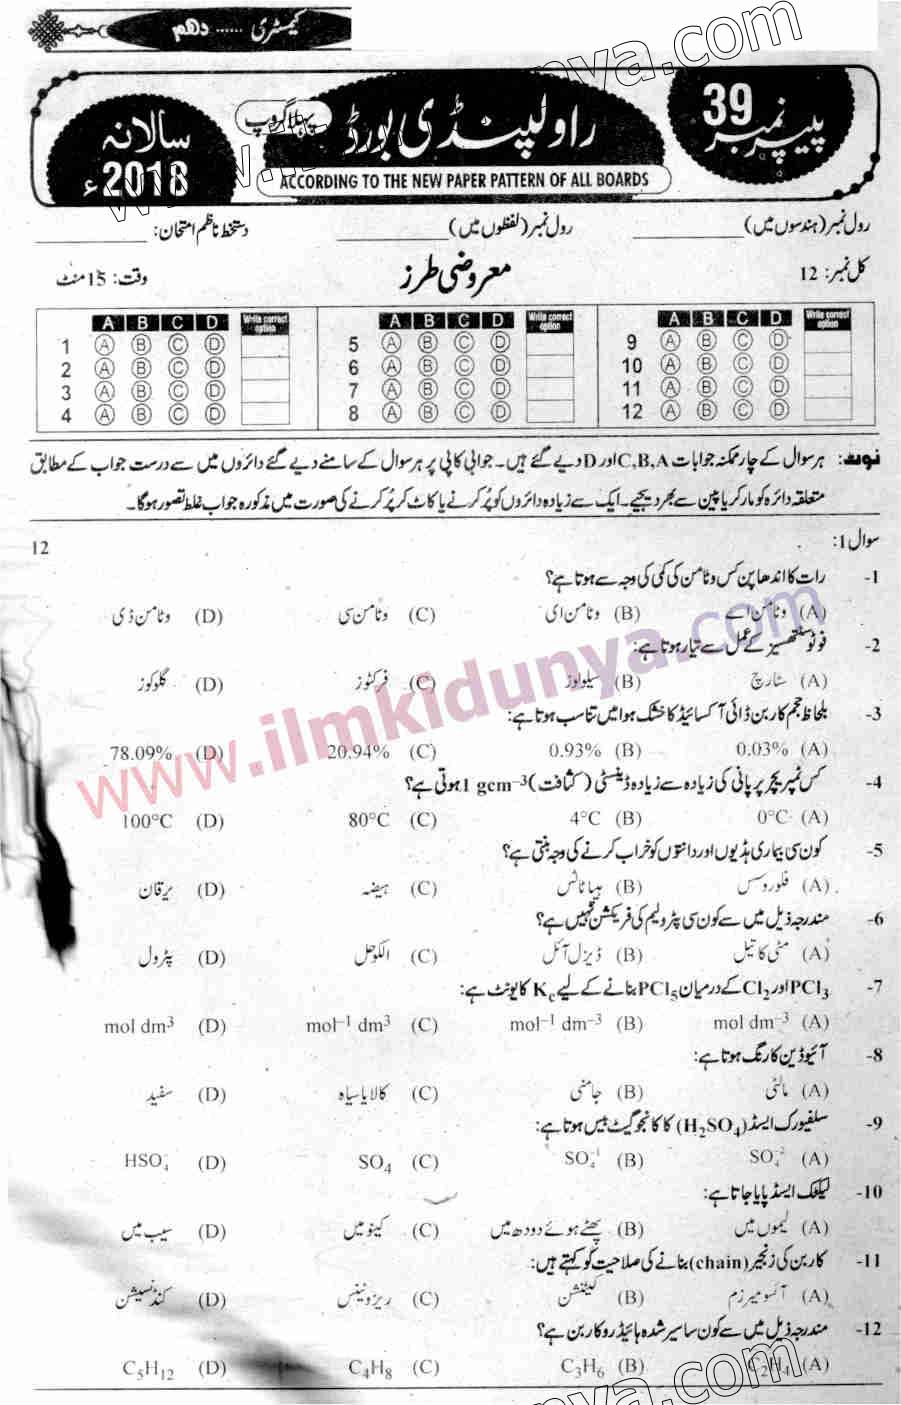 کیمسٹری ...... دھم
پیپر نمبر 39
راولپنڈی بورڈ
پہلا گروپ
سالانہ
2018ء
ACCORDING TO THE NEW PAPER PATTERN OF ALL BOARDS
رول نمبر (ہندسوں میں) ____________ رول نمبر (لفظوں میں) ____________ دستخط ناظم امتحان: ____________
کل نمبر: 12 معروضی طرز وقت: 15 منٹ
A B C D Write correct option A B C D Write correct option A B C D Write correct option
1 A B C D 5 A B C D 9 A B C D
2 A B C D 6 A B C D 10 A B C D
3 A B C D 7 A B C D 11 A B C D
4 A B C D 8 A B C D 12 A B C D
نوٹ: ہر سوال کے چار ممکنہ جوابات C,B,A اور D دیے گئے ہیں۔ جوابی کاپی پر ہر سوال کے سامنے دیے گئے دائروں میں سے درست جواب کے مطابق
متعلقہ دائرہ کو مارکر یا پین سے بھر دیجیے۔ ایک سے زیادہ دائروں کو پُر کرنے یا کاٹ کر پُر کرنے کی صورت میں مذکورہ جواب غلط تصور ہوگا۔
سوال 1: 12
1- رات کا اندھا پن کس وٹامن کی کمی کی وجہ سے ہوتا ہے؟
(A) وٹامن اے (B) وٹامن ای (C) وٹامن سی (D) وٹامن ڈی
2- فوٹو سنتھیسز کے عمل سے تیار ہوتا ہے:
(A) سٹارچ (B) سیلولوز (C) فرکٹوز (D) گلوکوز
3- بلحاظ حجم کاربن ڈائی آکسائیڈ کا خشک ہوا میں تناسب ہوتا ہے:
(A) 0.03% (B) 0.93% (C) 20.94% (D) 78.09%
4- کس ٹمپریچر پر پانی کی زیادہ سے زیادہ ڈینسٹی (کثافت) 1 gcm⁻³ ہوتی ہے؟
(A) 0°C (B) 4°C (C) 80°C (D) 100°C
5- کون سی بیماری ہڈیوں اور دانتوں کو خراب کرنے کی وجہ بنتی ہے؟
(A) فلوروسس (B) ہیپاٹائٹس (C) ہیضہ (D) یرقان
6- مندرجہ ذیل میں سے کون سی پٹرولیم کی فریکشن نہیں ہے؟
(A) مٹی کا تیل (B) ڈیزل آئل (C) الکوحل (D) پٹرول
7- PCl₃ اور Cl₂ کے درمیان PCl₅ بنانے کے لیے Kc کا یونٹ ہے:
(A) mol dm⁻³ (B) mol⁻¹ dm⁻³ (C) mol⁻¹ dm³ (D) mol dm³
8- آئیوڈین کا رنگ ہوتا ہے:
(A) مالٹی (B) جامنی (C) کالا یا سیاہ (D) سفید
9- سلفیورک ایسڈ (H₂SO₄) کا کانجوگیٹ بیس ہوتا ہے:
(A) SO₄⁻² (B) SO₄⁻¹ (C) SO₄ (D) HSO₄⁻
10- لیکٹک ایسڈ پایا جاتا ہے:
(A) لیموں میں (B) پھٹے ہوئے دودھ میں (C) کینو میں (D) سیب میں
11- کاربن کی زنجیر (chain) بنانے کی صلاحیت کو کہتے ہیں:
(A) آئسومیرزم (B) کیٹینیشن (C) ریزونینس (D) کنڈنسیشن
12- مندرجہ ذیل میں سے کون سا سیر شدہ ہائیڈروکاربن ہے؟
(A) C₂H₄ (B) C₃H₆ (C) C₄H₈ (D) C₅H₁₂
www.ilmkidunya.com